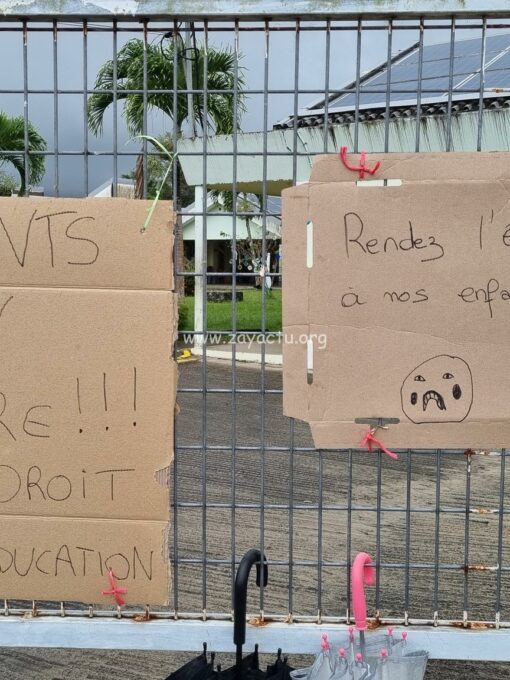 NTS
RE !!!
DROIT
DUCATION
Rendez l'é
à nos enfa
www.zayactu.org